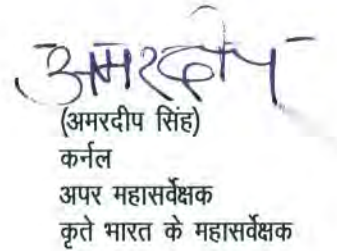 अमरदीप
(अमरदीप सिंह)
कर्नल
अपर महासर्वेक्षक
कृते भारत के महासर्वेक्षक